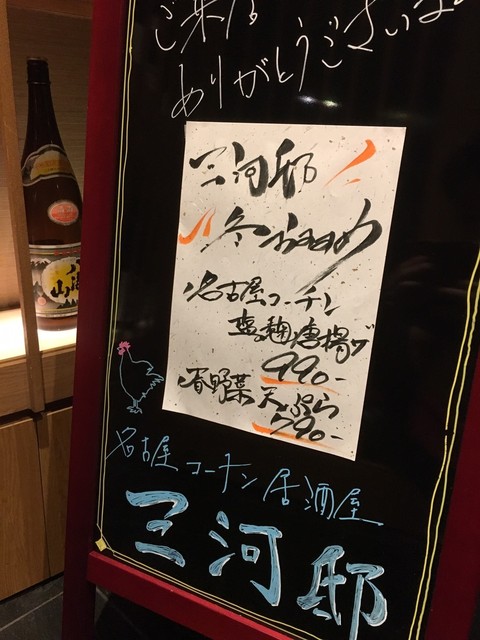 ご来店
ありがとうございま
三河邸
冬のおすすめ
名古屋コーチン
塩麹唐揚げ
990-
春野菜天ぷら
790-
名古屋コーチン居酒屋
三河邸
八海山